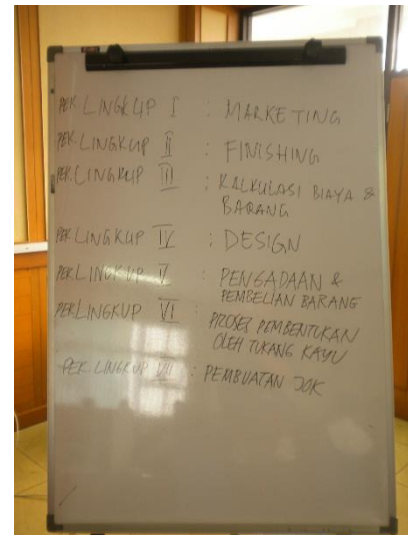 PER LINGKUP I : MARKETING
PER LINGKUP II : FINISHING
PER LINGKUP III : KALKULASI BIAYA &
BARANG
PER LINGKUP IV : DESIGN
PER LINGKUP V : PENGADAAN &
PEMBELIAN BARANG
PER LINGKUP VI : PROSES PEMBENTUKAN
OLEH TUKANG KAYU
PER LINGKUP VII : PEMBUATAN JOK